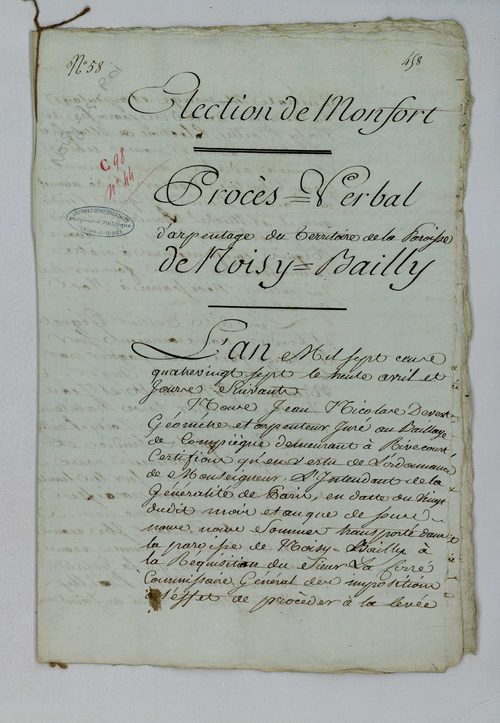 N° 58
458
Election de Monfort
NOISY LE ROI
C 98
n° 44
Procès = Verbal
d'arpentage du territoire de la Paroisse
de Noisy = Bailly
L'an Mil sept cent
quatrevingt sept le huit avril et
Jours Suivants
Nous Jean Nicolas Devert
Géometre et arpenteur Juré au Bailliage
de Compiègne demeurant à Rivecourt
Certifions qu'en vertu de L'ordonnance
de Monseigneur L'Intendant de la
Généralité de Paris, en datte du Vingt
dudit mois et an que de jours
nous nous Sommes transporté dans
la paroisse de Noisy Bailly à
la Requisition du Sieur La Serre
Commissaire Général des impositions
à l'effet de procèder à la levée